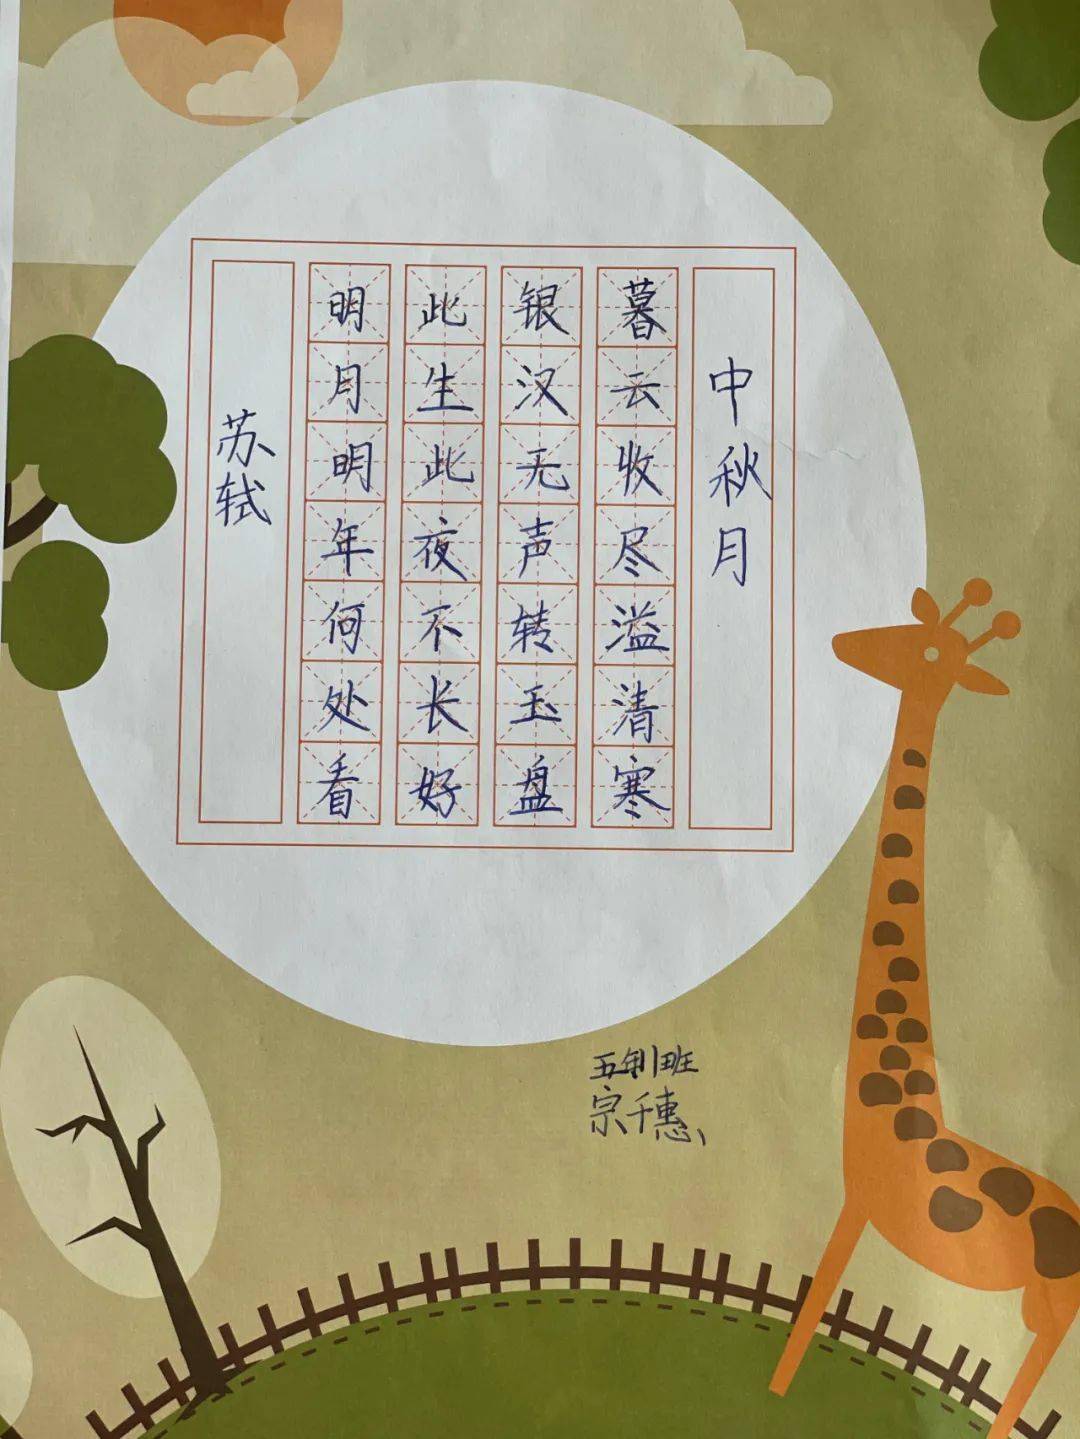 中秋月
暮云收尽溢清寒
银汉无声转玉盘
此生此夜不长好
明月明年何处看
苏轼
五年1班
宗千惠